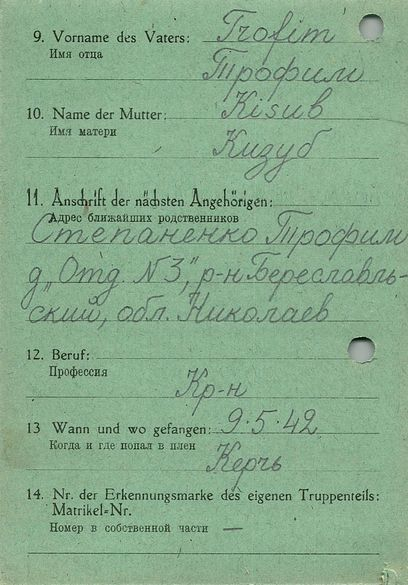 9. Vorname des Vaters: Trofim
Имя отца
Трофим
10. Name der Mutter: Kisub
Имя матери
Кизуб
11. Anschrift der nächsten Angehörigen:
Адрес ближайших родственников
Степаненко Трофим
д. „Отд. N3", р-н Береславль-
ский, обл. Николаев
12. Beruf:
Профессия
Кр-н
13 Wann und wo gefangen: 9·5·42
Когда и где попал в плен
Керчь
14. Nr. der Erkennungsmarke des eigenen Truppenteils:
Matrikel=Nr.
Номер в собственной части —